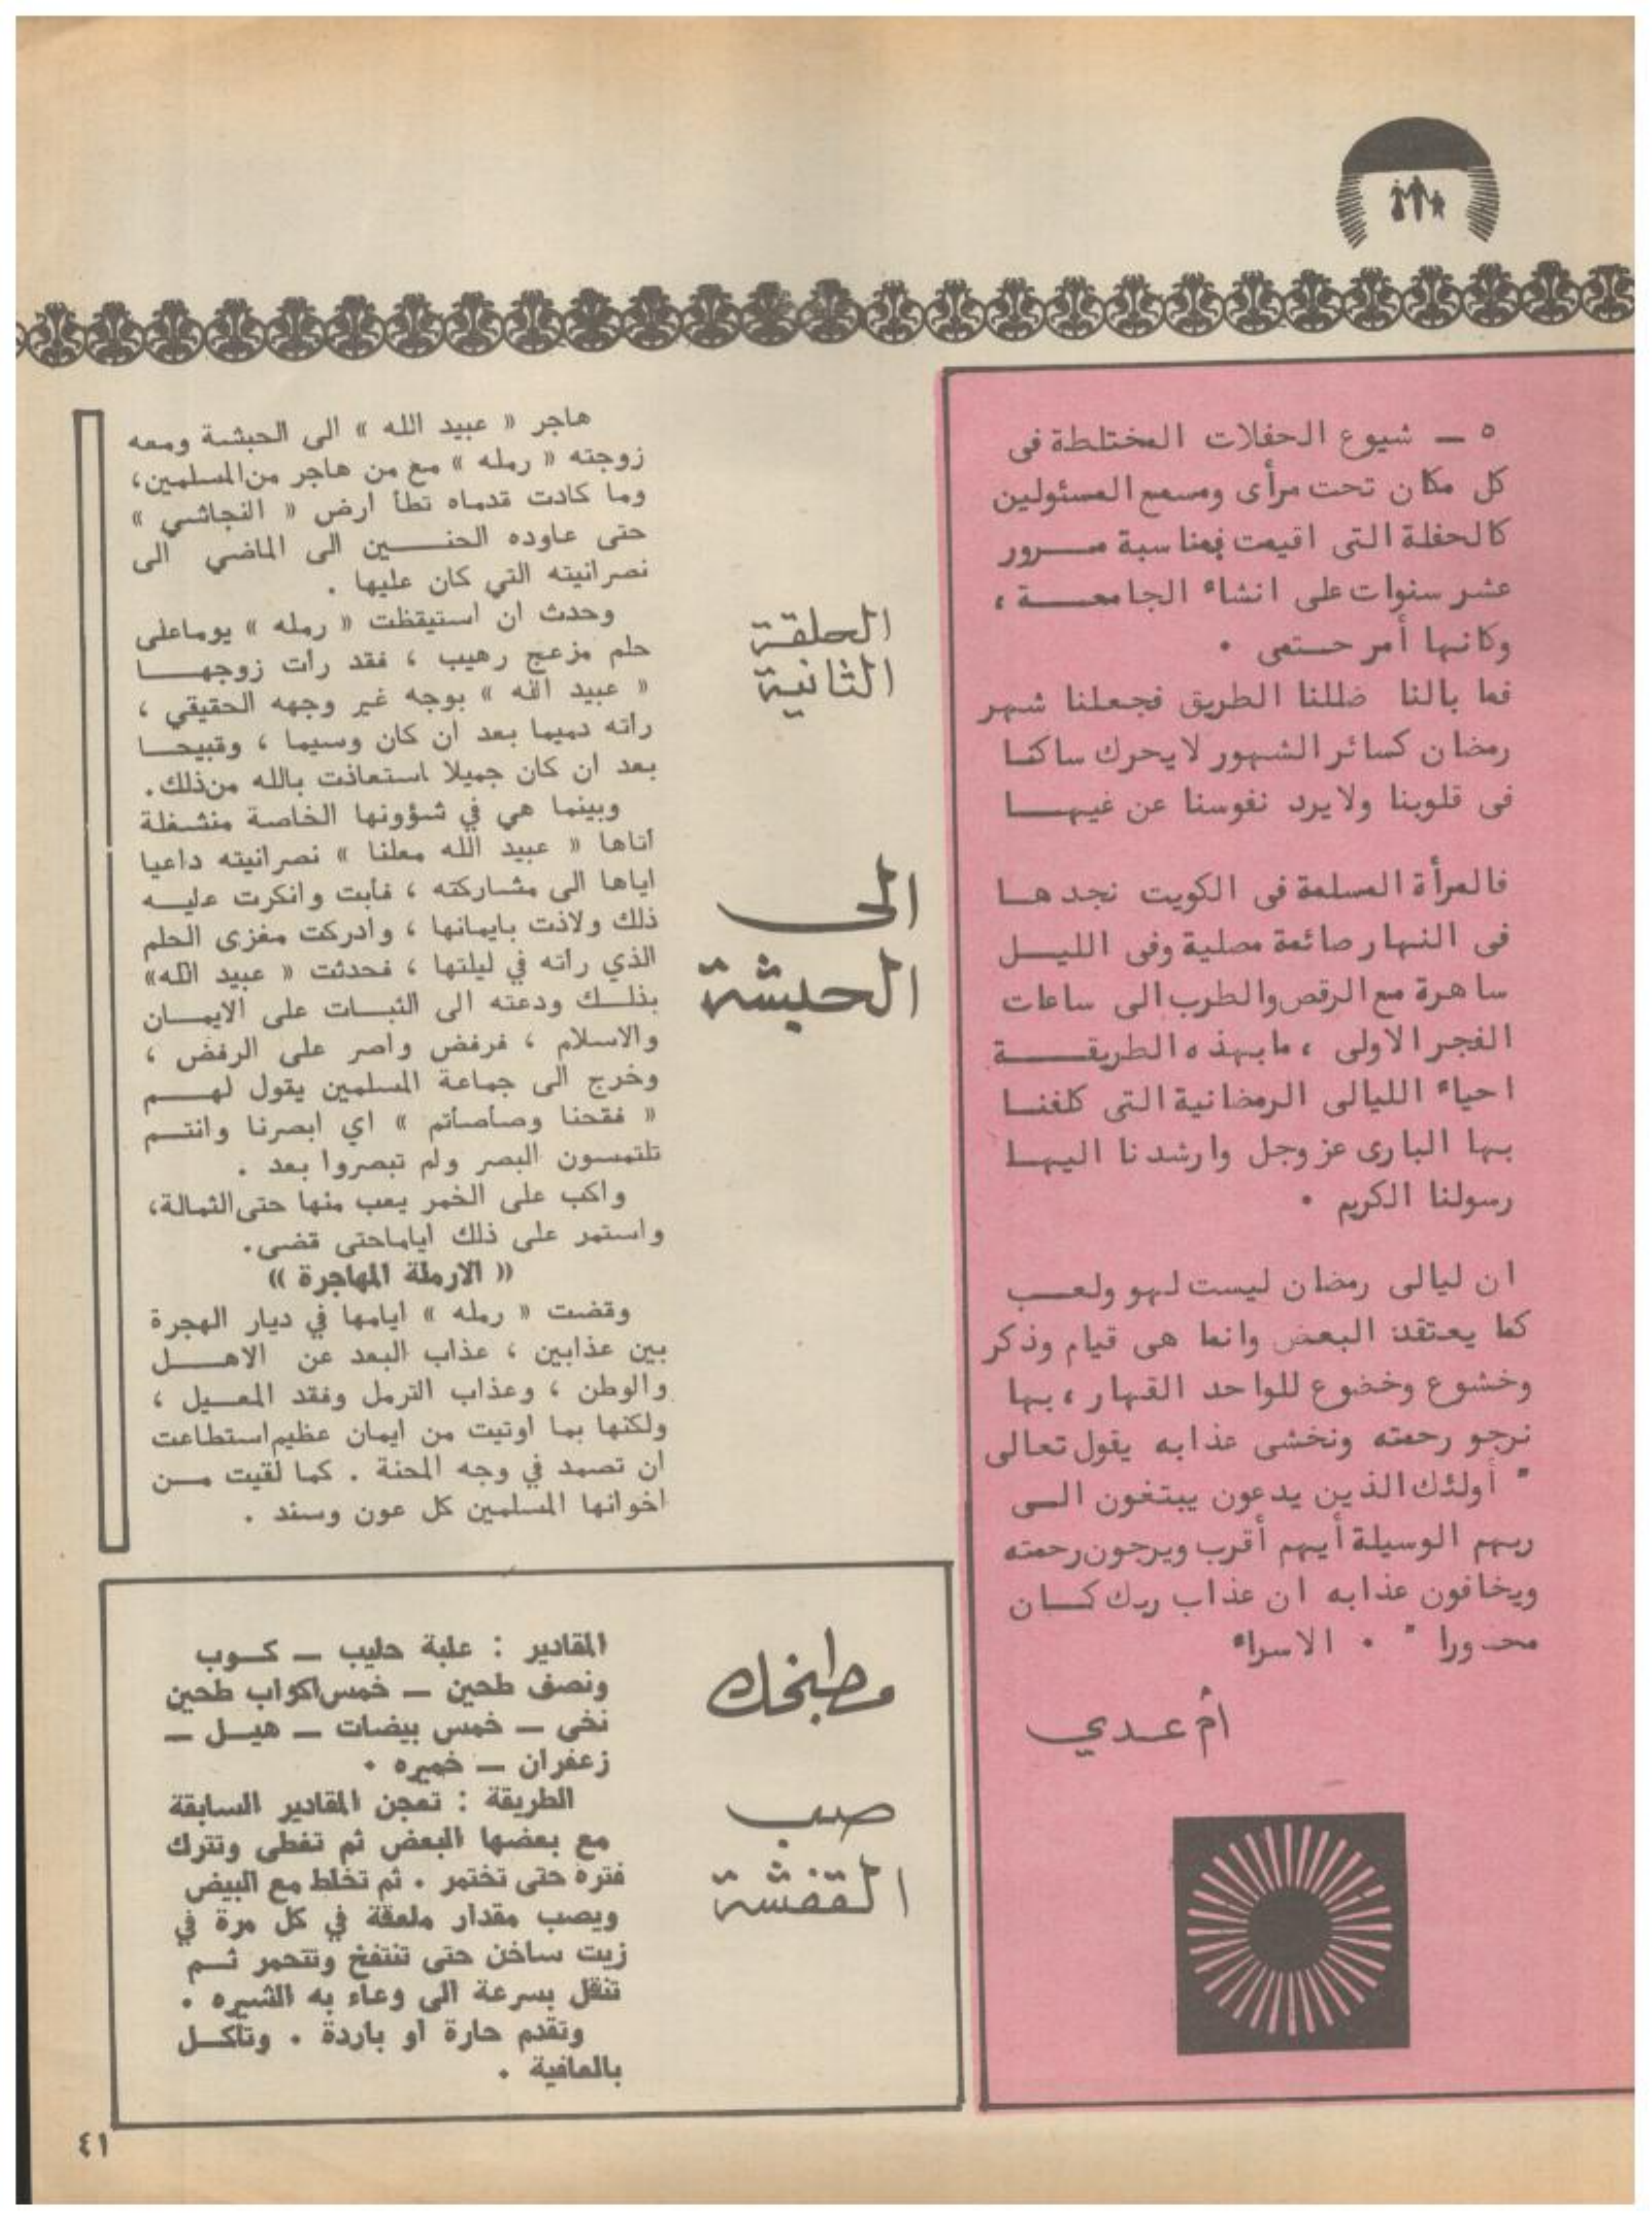 ٥ ـ شيوع الحفلات المختلطة فى
كل مكان تحت مرأى ومسمع المسئولين
كالحفلة التى اقيمت بمناسبة مرور
عشر سنوات على انشاء الجامعة ،
وكانها أمر حتمى ٠
فما بالنا ضللنا الطريق فجعلنا شهر
رمضان كسائر الشهور لا يحرك ساكنا
فى قلوبنا ولا يرد نفوسنا عن غيها
فالمرأة المسلمة فى الكويت نجدها
فى النهار صائمة مصلية وفى الليل
ساهرة مع الرقص والطرب الى ساعات
الفجر الاولى ، ما بهذه الطريقة
احياء الليالى الرمضانية التى كلفنا
بها البارى عز وجل وارشدنا اليها
رسولنا الكريم ٠
ان ليالى رمضان ليست لهو ولعب
كما يعتقد البعض وانما هى قيام وذكر
وخشوع وخضوع للواحد القهار ، بها
نرجو رحمته ونخشى عذابه يقول تعالى
" أولئك الذين يدعون يبتغون الى
ربهم الوسيلة أيهم أقرب ويرجون رحمته
ويخافون عذابه ان عذاب ربك كان
محذورا " ٠ الاسراء
أم عدي
الحلقة
الثانية
الى
الحبشة
هاجر « عبيد الله » الى الحبشة ومعه
زوجته « رمله » مع من هاجر من المسلمين،
وما كادت قدماه تطأ ارض « النجاشي »
حتى عاوده الحنين الى الماضي الى
نصرانيته التي كان عليها .
وحدث ان استيقظت « رمله » يوما على
حلم مزعج رهيب ، فقد رأت زوجها
« عبيد الله » بوجه غير وجهه الحقيقي ،
رأته دميما بعد ان كان وسيما ، وقبيحا
بعد ان كان جميلا استعاذت بالله من ذلك .
وبينما هي في شؤونها الخاصة منشغلة
أتاها « عبيد الله معلنا » نصرانيته داعيا
اياها الى مشاركته ، فأبت وانكرت عليه
ذلك ولاذت بايمانها ، وادركت مغزى الحلم
الذي رأته في ليلتها ، فحدثت « عبيد الله»
بذلك ودعته الى الثبات على الايمان
والاسلام ، فرفض واصر على الرفض ،
وخرج الى جماعة المسلمين يقول لهم
« فقحنا وصأصأتم » اي ابصرنا وانتم
تلتمسون البصر ولم تبصروا بعد .
واكب على الخمر يعب منها حتى الثمالة،
واستمر على ذلك اياما حتى قضى.
« الارملة المهاجرة »
وقضت « رمله » ايامها في ديار الهجرة
بين عذابين ، عذاب البعد عن الاهل
والوطن ، وعذاب الترمل وفقد المعيل ،
ولكنها بما اوتيت من ايمان عظيم استطاعت
ان تصمد في وجه المحنة . كما لقيت من
اخوانها المسلمين كل عون وسند .
مطبخك
صب
القفشة
المقادير : علبة حليب ـ كوب
ونصف طحين ـ خمس اكواب طحين
نخى ـ خمس بيضات ـ هيل ـ
زعفران ـ خميره ٠
الطريقة : تعجن المقادير السابقة
مع بعضها البعض ثم تغطى وتترك
فتره حتى تختمر . ثم تخلط مع البيض
ويصب مقدار ملعقة في كل مرة في
زيت ساخن حتى تنتفخ وتتحمر ثم
تنقل بسرعة الى وعاء به الشيره ٠
وتقدم حارة او باردة . وتأكل
بالعافية .
٤١